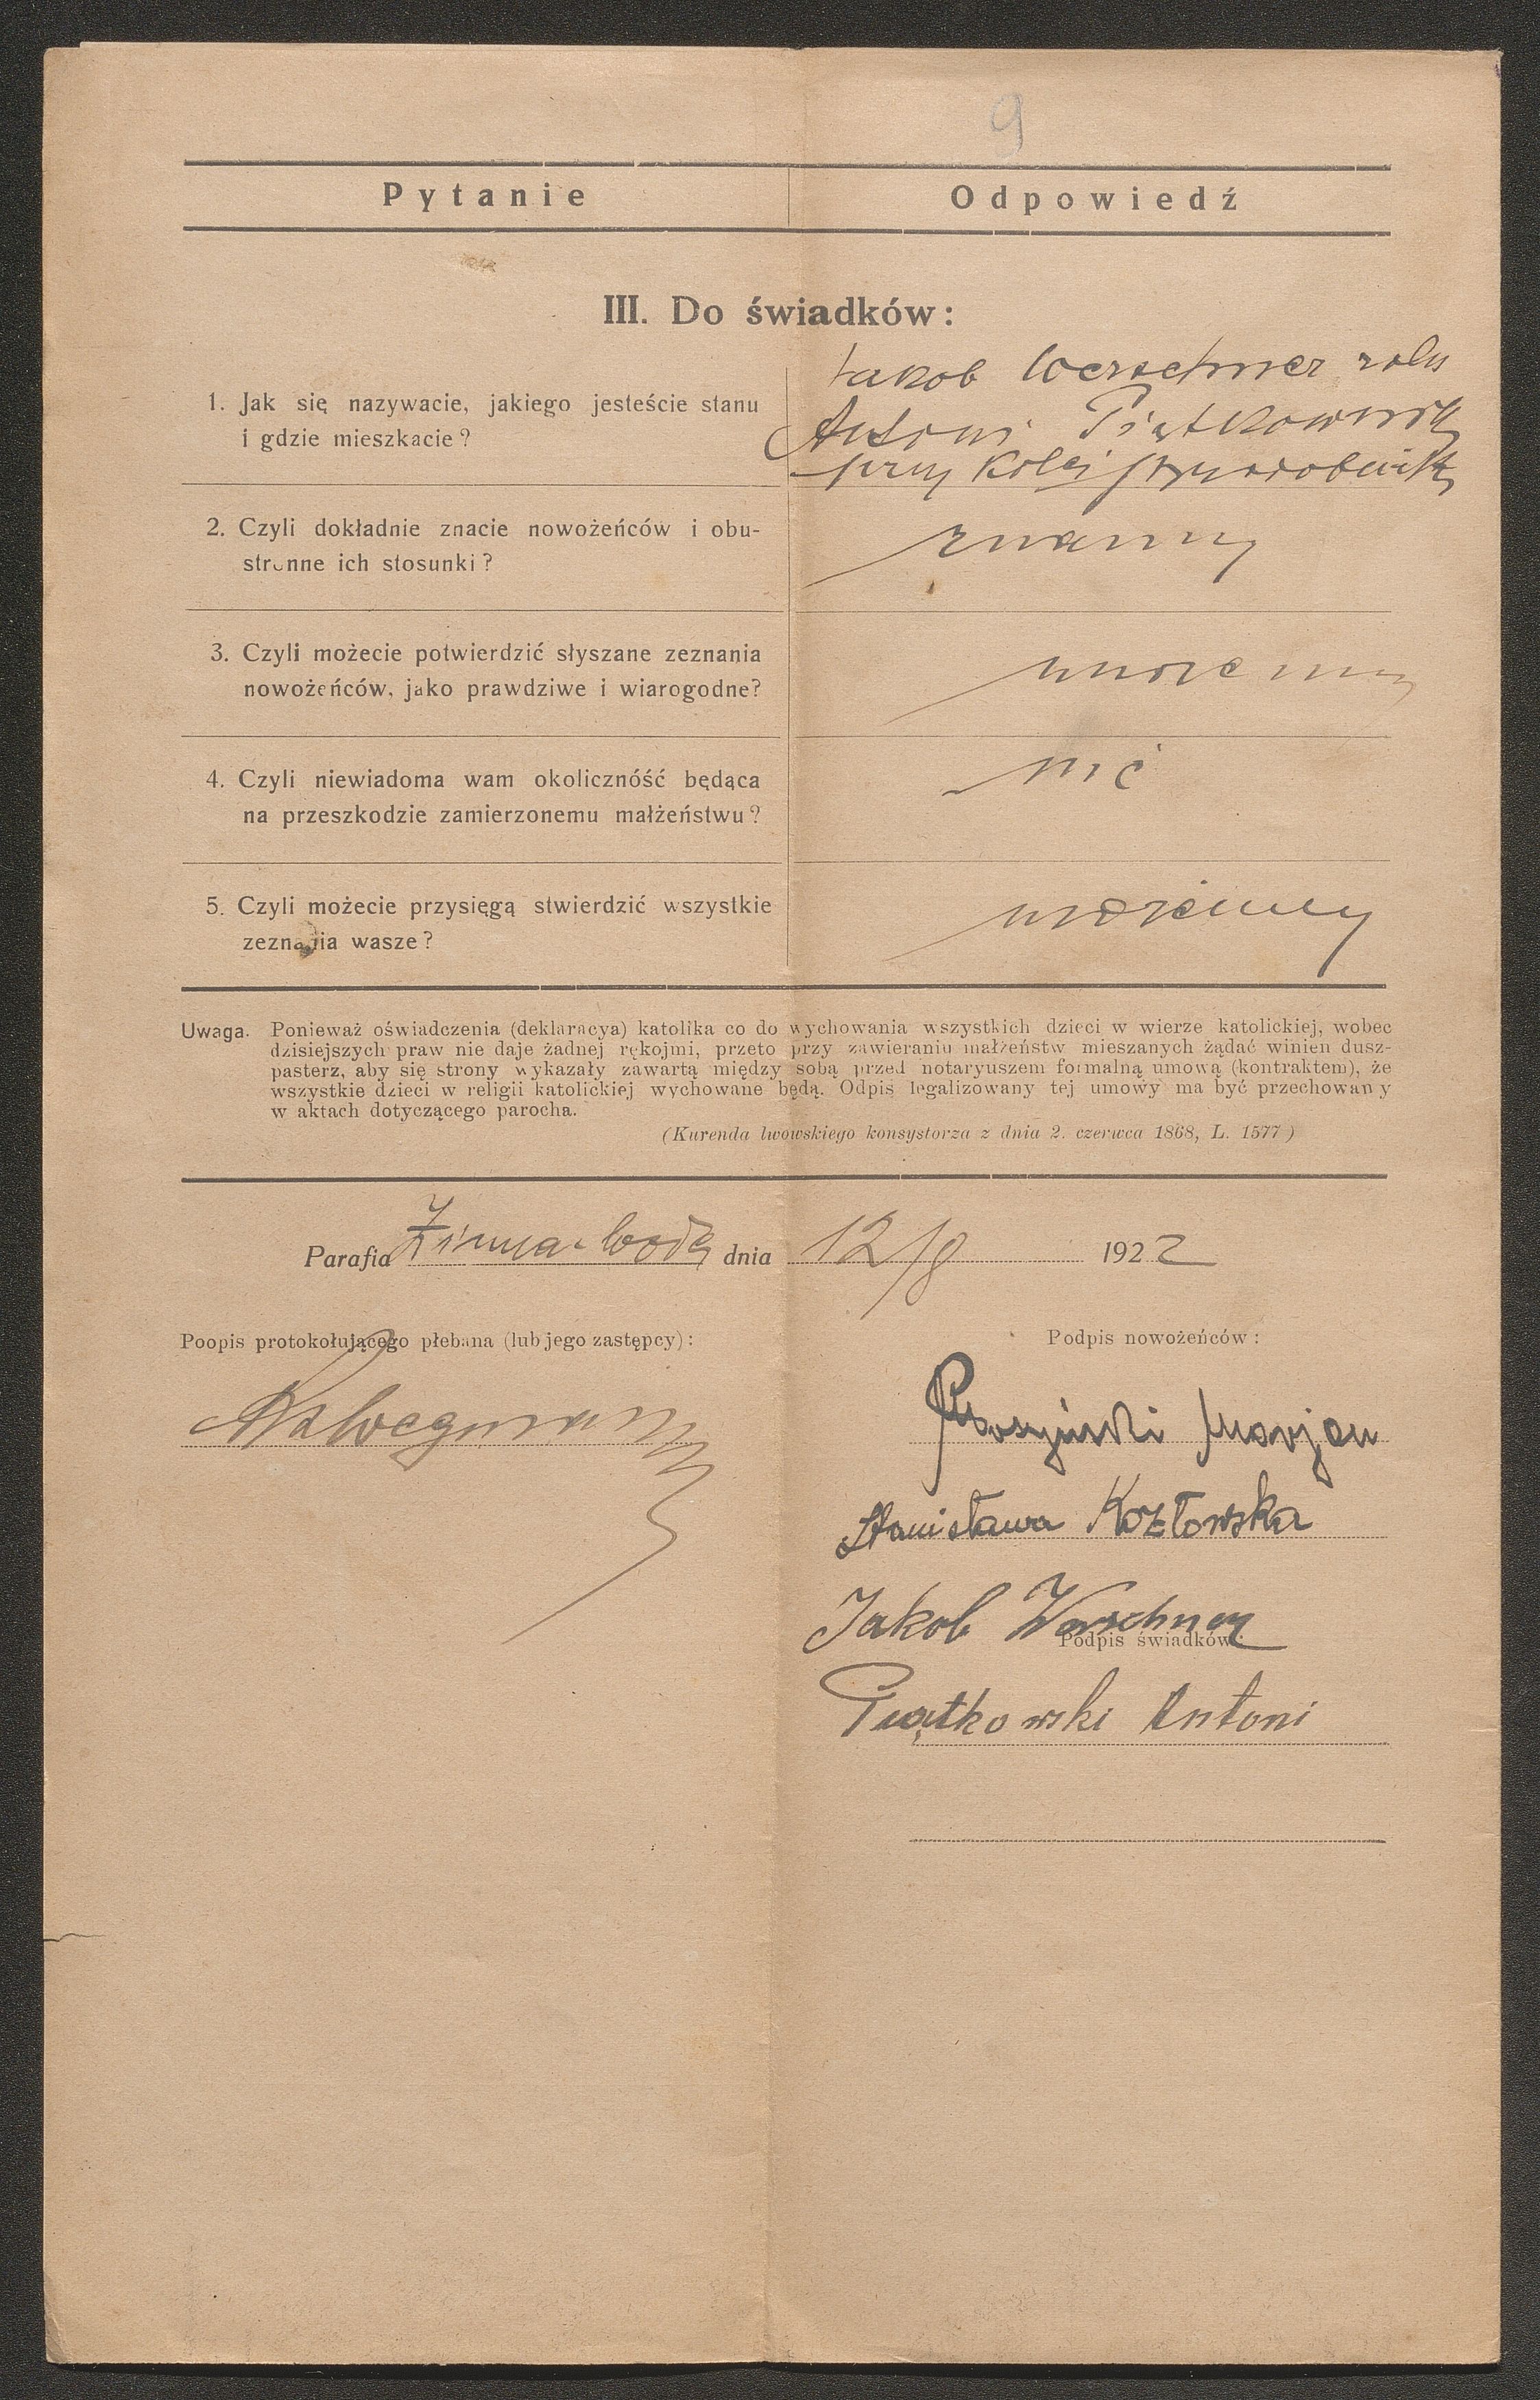 9
Pytanie
Odpowiedź
III. Do świadków:
1. Jak się nazywacie, jakiego jesteście stanu
i gdzie mieszkacie?
Jakob Werschner
Antoni Piątkowski
przy Kolei
2. Czyli dokładnie znacie nowożeńców i obu-
stronne ich stosunki?
znamy
3. Czyli możecie potwierdzić słyszane zeznania
nowożeńców, jako prawdziwe i wiarogodne?
możemy
4. Czyli niewiadoma wam okolicznóść będąca
na przeszkodzie zamierzonemu małżeństwu?
nic
5. Czyli możecie przysięgą stwierdzić wszystkie
zeznania wasze?
możemy
Uwaga. Ponieważ oświadczenia (deklaracya) katolika co do wychowania wszystkich dzieci w wierze katolickiej, wobec
dzisiejszych praw nie daje żadnej rękojmi, przeto przy zawieraniu małżeństw mieszanych żądać winien dusz-
pasterz, aby się strony wykazały zawartą między sobą przed notaryuszem formalną umową (kontraktem), że
wszystkie dzieci w religii katolickiej wychowane będą. Odpis legalizowany tej umowy ma być przechowany
w aktach dotyczącego parocha.
(Kurenda lwowskiego konsystorza z dnia 2. czerwca 1868, L. 1577)
Parafia Zimna-Woda dnia 12/8 1922
Poopis protokołującego plebana (lub jego zastępcy):
Podpis nowożeńców:
Marjan
Stanisława Kozłowska
Jakob Werschner
Podpis świadków:
Piątkowski Antoni